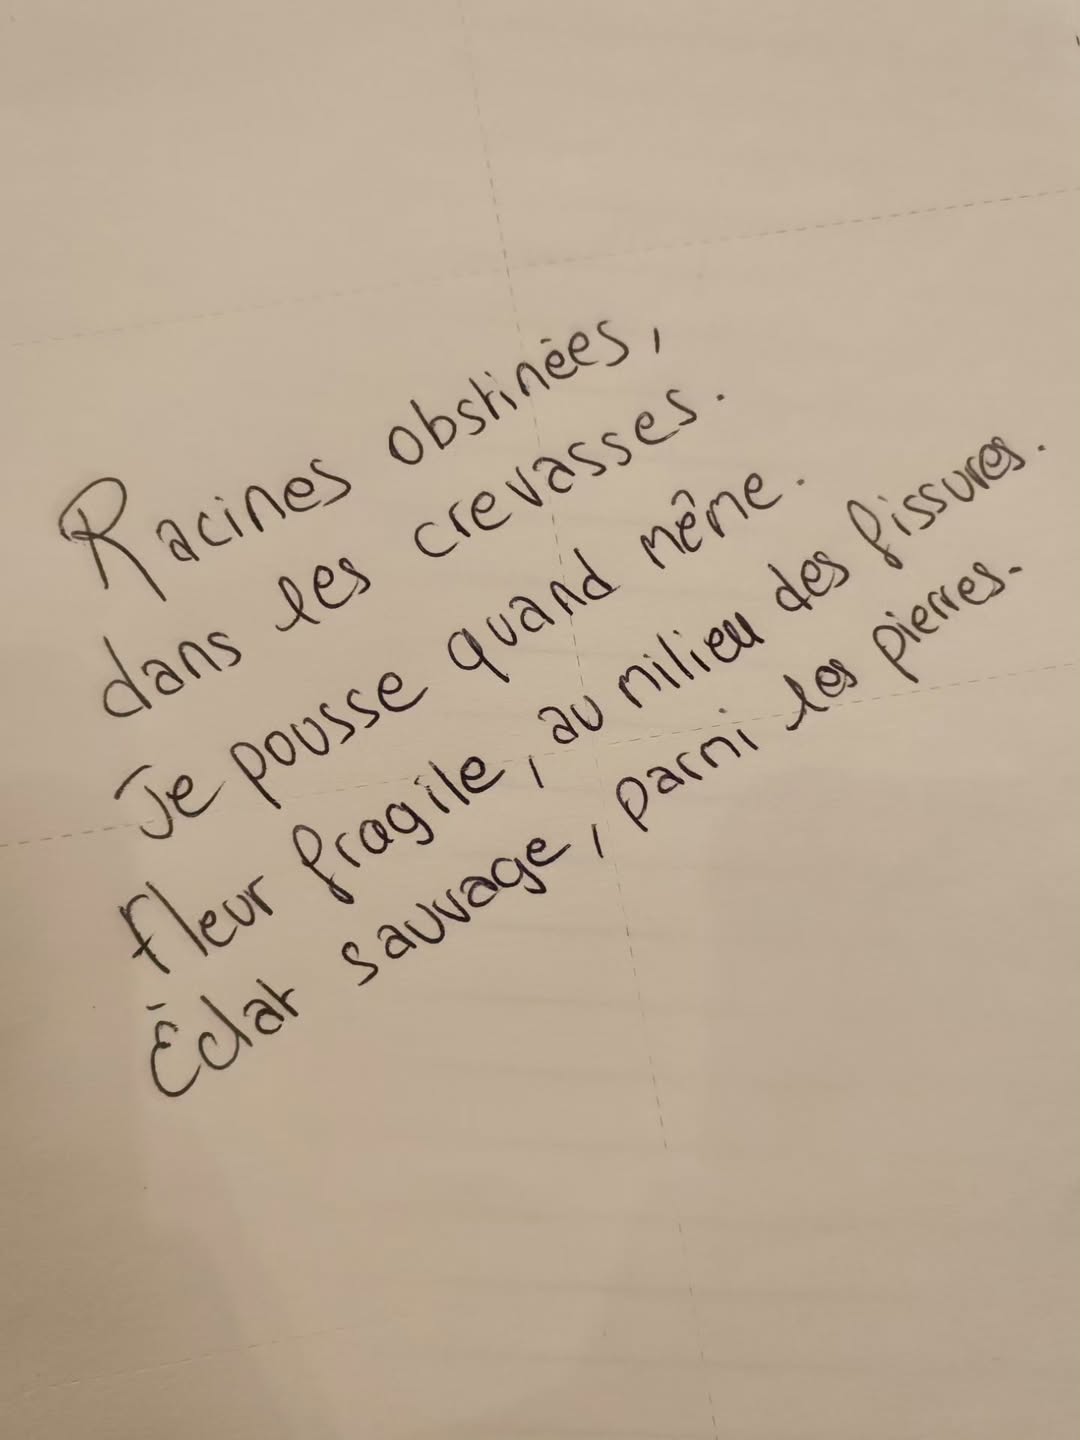 Racines obstinées,
dans les crevasses.
Je pousse quand même.
fleur fragile, au milieu des fissures.
Éclat sauvage, parmi les pierres.